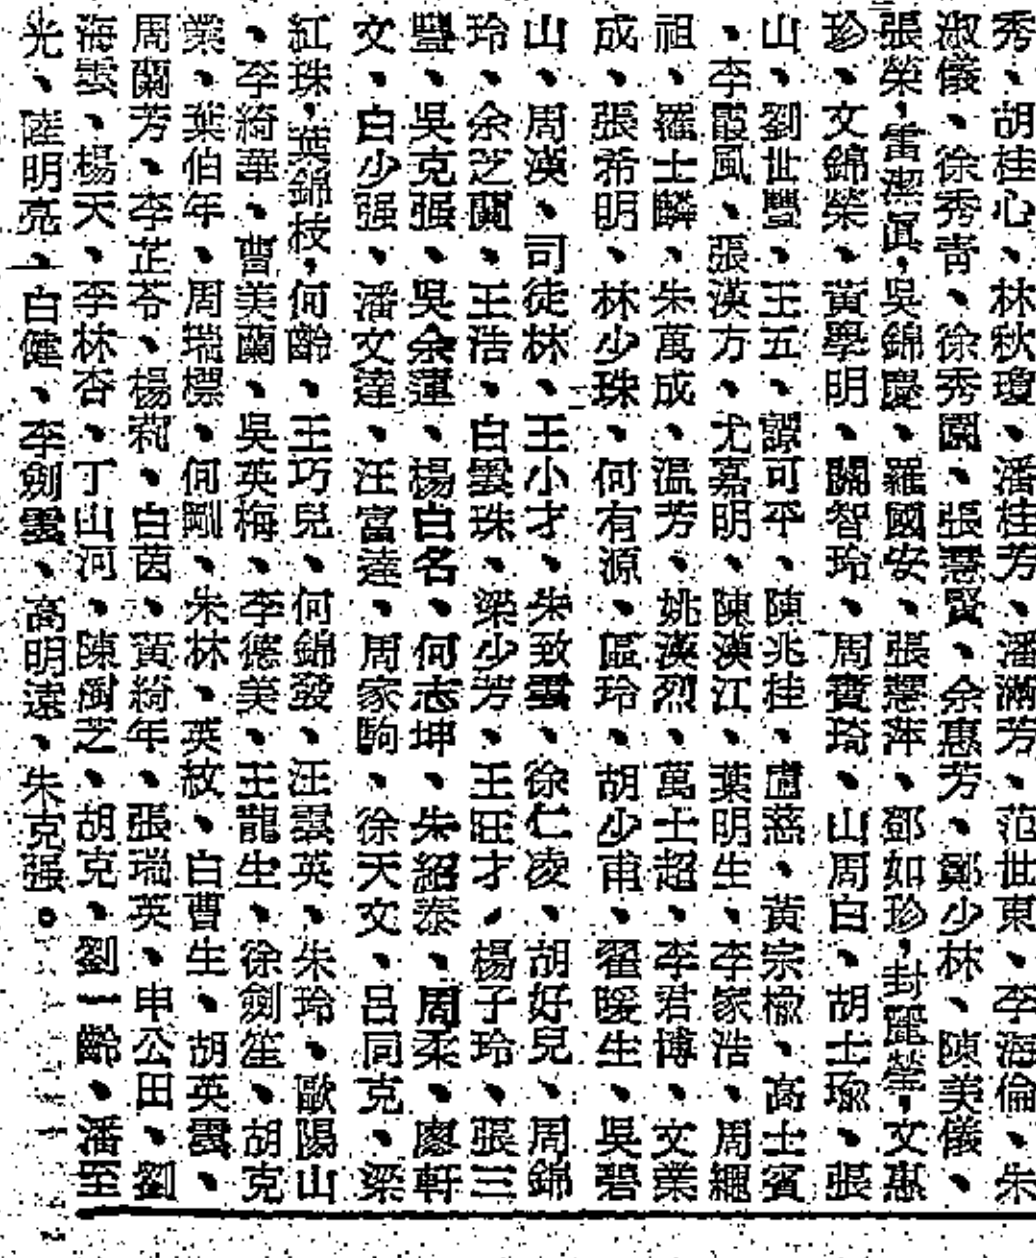 秀、胡桂心、林秋瓊、潘桂芳、潘滿芳、范世東、李海倫、朱
淑儀、徐秀青、徐秀園、張慧賢、余惠芳、鄭少林、陳美儀、
張榮，雷潔眞，吳錦慶、羅國安、張慧萍、鄧如珍，封麗瑩，文惠
珍、文錦榮、黃學明、關智玲、周寶琦、山周白、胡士瑜、張
山、劉世豐、王五、譚可平、陳兆桂、盧慈、黃宗榆、高士賓
、李霞風、張漢方、尤嘉明、陳漢江、葉明生、李家浩、周繼
祖、羅士麟、朱萬成、温芳、姚漢烈、萬士超、李君博、文業
成、張希明、林少珠、何有源、區玲、胡少甫、翟暖生、吳碧
山、周漢、司徒林、王小才、朱致雲、徐仁凌、胡好兒、周錦
玲、余芝蘭、王浩、白雲珠、梁少芳、王旺才、楊子玲、張三
豐、吳克强、吳余蓮、楊白名、何志坤、朱紹泰、周柔、廖軒
文、白少强、潘文達、汪富達、周家駒、徐天文、呂同克、梁
紅珠，葉錦枝，何齡、王巧兒、何錦發、汪雲英、朱玲、歐陽山
、李綺華、曹美蘭、吳英梅、李德美、王龍生、徐劍笙、胡克
業、葉伯年、周瑞標、何剛、朱林、英紋、白曹生、胡英雲、
周蘭芳、李芷苓、楊莉、白茵、黃綺年、張瑞英、申公田、劉
海雲、楊天、李林杏、丁山河、陳樹芝、胡克、劉一齡、潘至
光、陸明亮、白健、李劍雲、高明遠、朱克强。